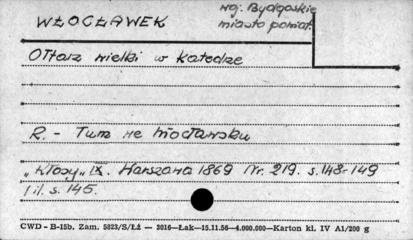 WŁOCŁAWEK
woj. Bydgoskie
miasto powiat.
Ołtarz wielki w katedze
R. - Tum we Włocławsku
„Kłosy" IX. Warszawa 1869 Nr. 219. s. 148-149
1 il. s. 145.
CWD - B-15b, Zam. 5823/S/Łź — 3016—Łak—15.11.56—4.000.000—Karton kl. IV A1/200 g